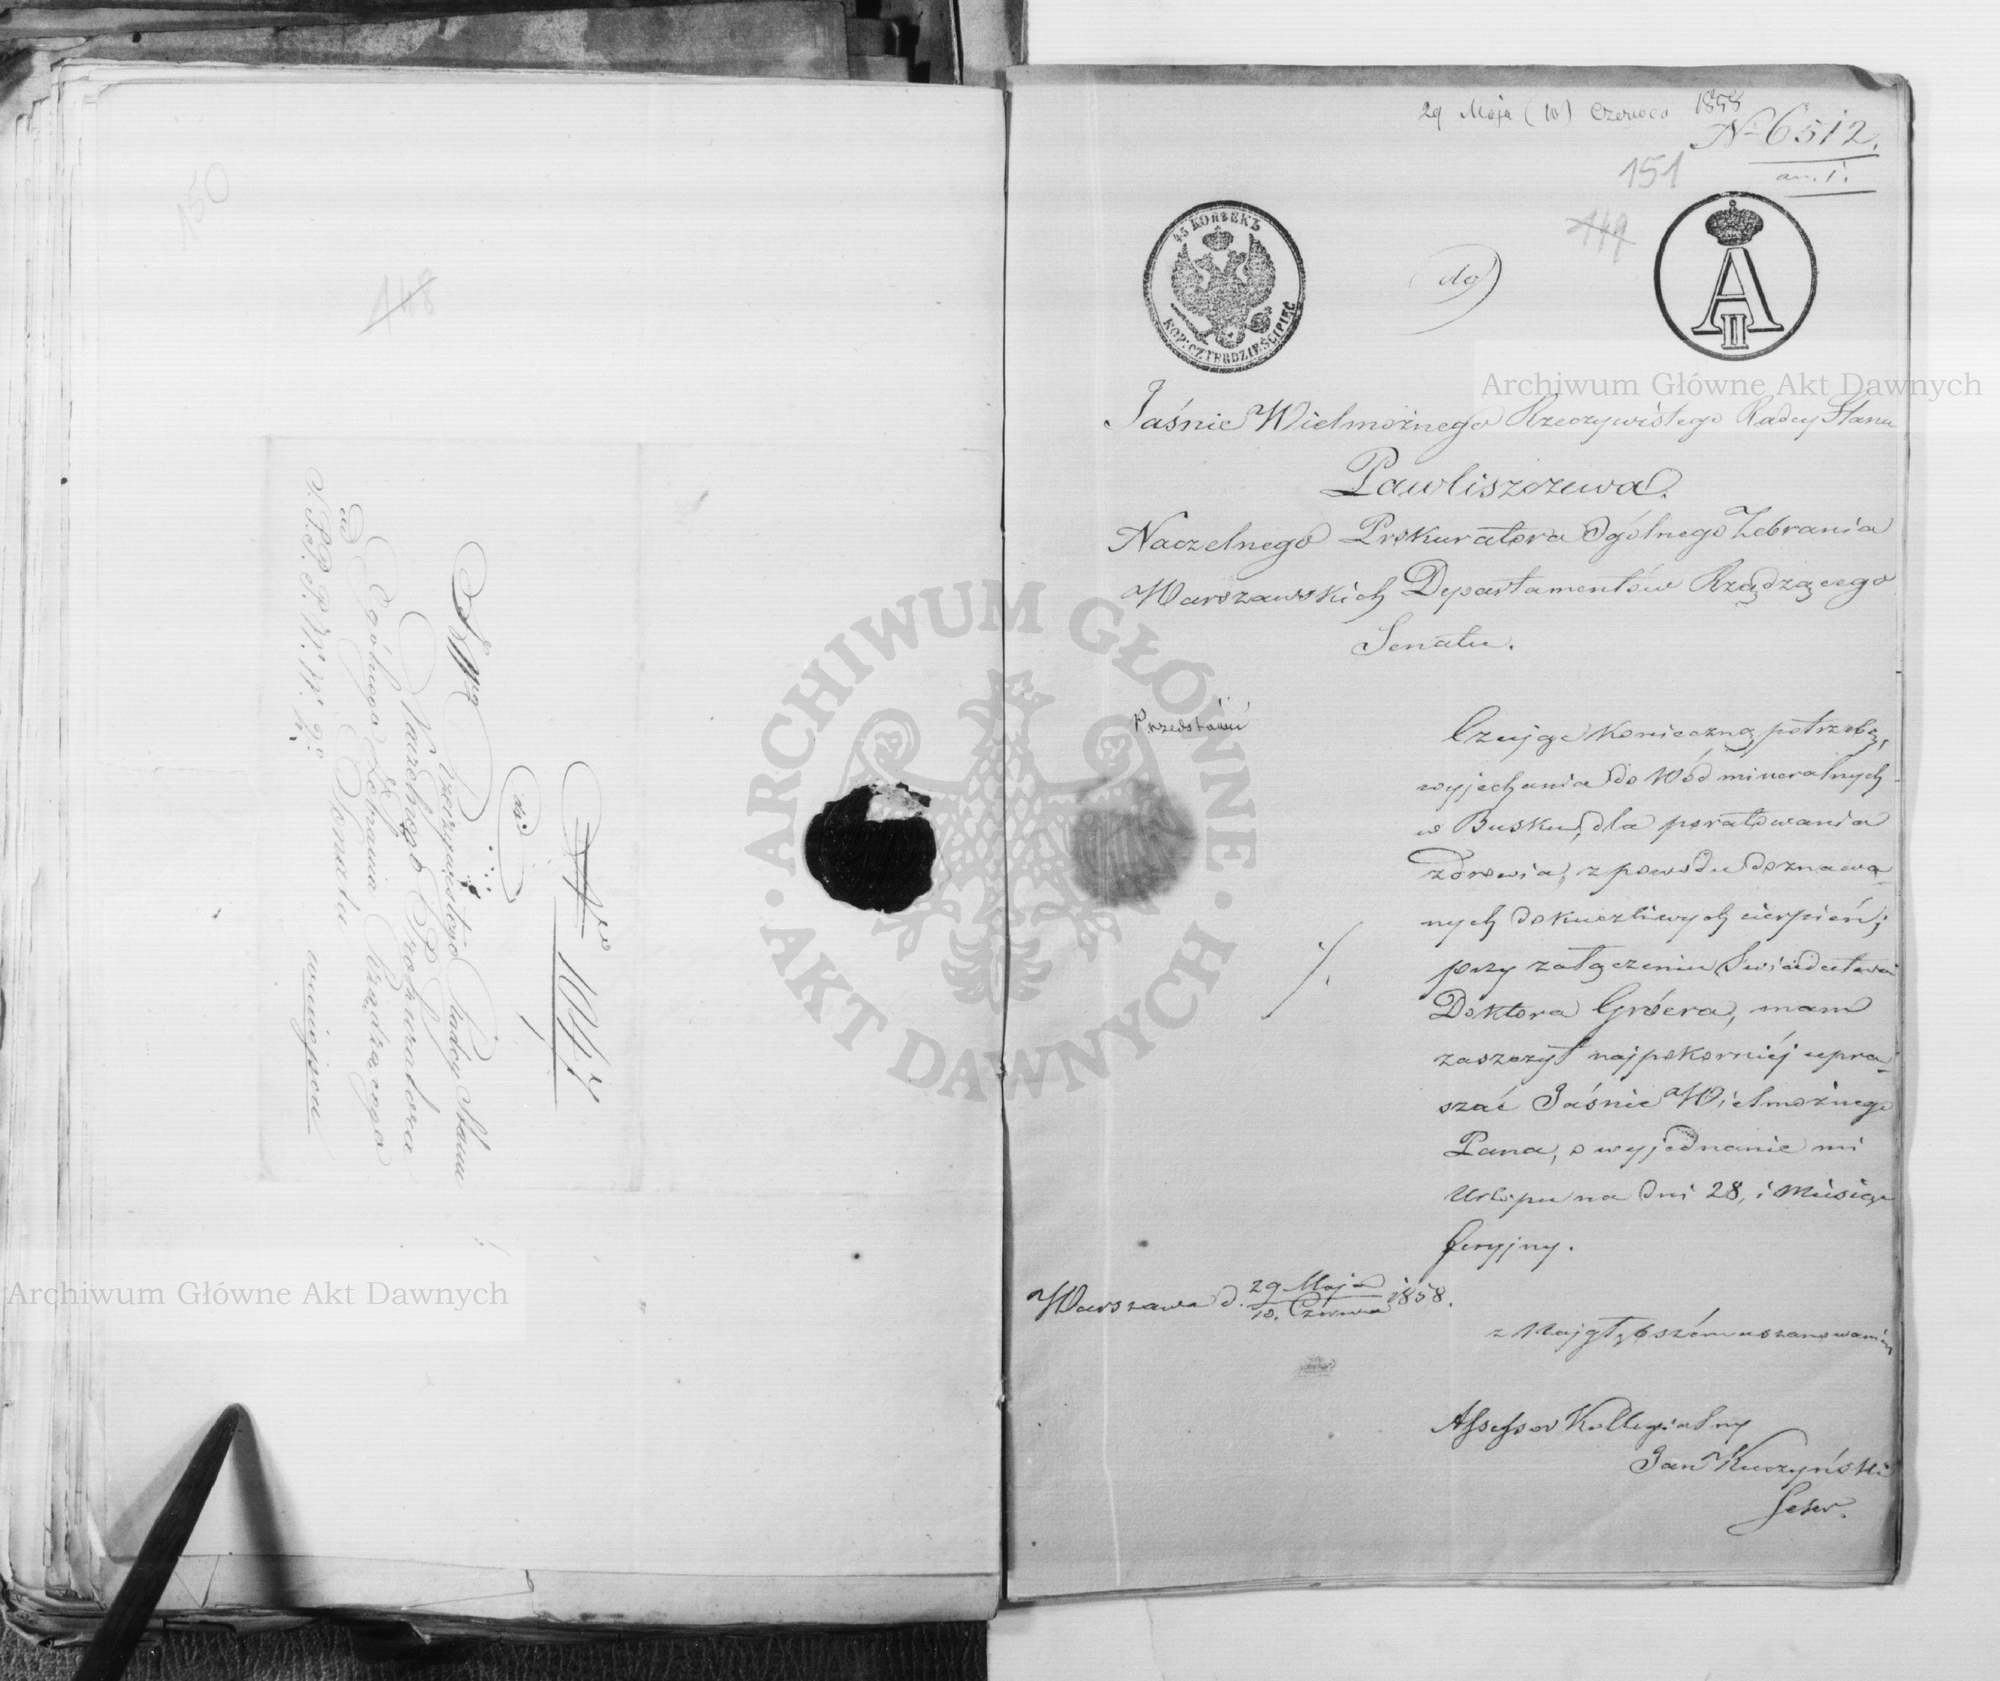 150
148
№ 1044
do
JW Rzeczywistego Radcy Stanu
Naczelnego Prokuratora
Ogólnego Zebrania Rządzącego
Senatu
w miejscu
29 Maja (10) Czerwca 1858
№ 6512.
an. 1.
151
149
45 КОПѢЕКЪ
KOP: CZTERDZIEŚCI PIĘĆ
do
A II
Jaśnie Wielmożnego Rzeczywistego Radcy Stanu
Pawliszczewa.
Naczelnego Prokuratora Ogólnego Zebrania
Warszawskich Departamentów Rządzącego
Senatu.
Przedstawić
Czując konieczną potrzebę,
wyjechania do Wód mineralnych
w Busku, dla poratowania
Zdrowia, z powodu doznawa-
nych dokuczliwych cierpień;
przy załączeniu Świadectwa
Doktora Gröera, mam
zaszczyt najpokorniéj upra-
szać Jaśnie Wielmożnego
Pana, o wyjednanie mi
Urlopu na dni 28, i Miesiąc
feryjny.
Warszawa d. 29 Maja / 10. Czerwca 1858.
z Najgłębszém uszanowaniem
Assessor Kollegialny
Jan Kuczyński
Archiwum Główne Akt Dawnych
Archiwum Główne Akt Dawnych
ARCHIWUM GŁÓWNE
AKT DAWNYCH